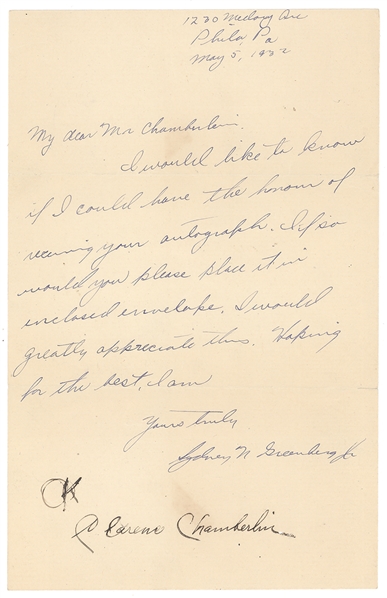 1230
Phila, Pa
May 5, 1932
My dear Mr Chamberlin:
I would like to know
if I could have the honour of
receiving your autograph. If so
would you please place it in
enclosed envelope. I would
greatly appreciate this. Hoping
for the best, I am
Yours truly
Sydney N Greenberg Jr
OK
Clarence Chamberlin